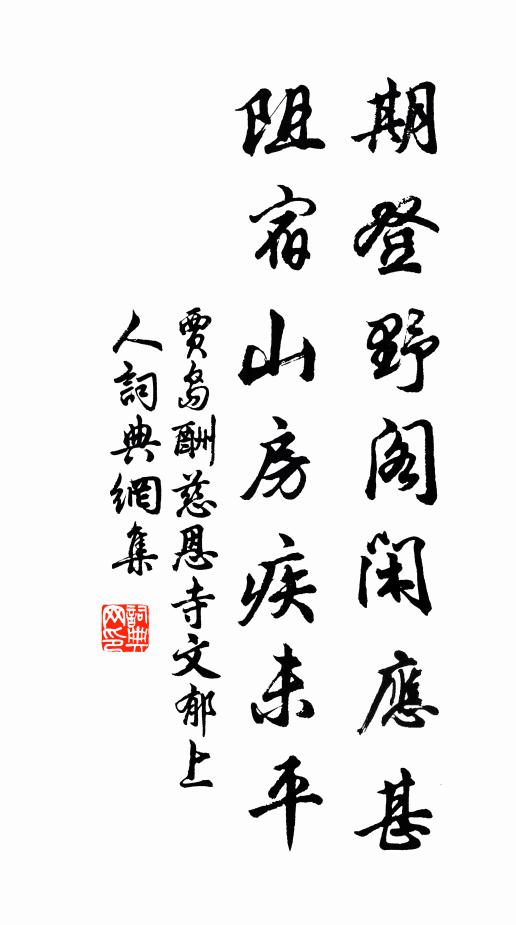 期登野阁閑應甚
阻宿山房疾未平
賈島酬慈恩寺文郁上
人詞典網集
詞典
网印